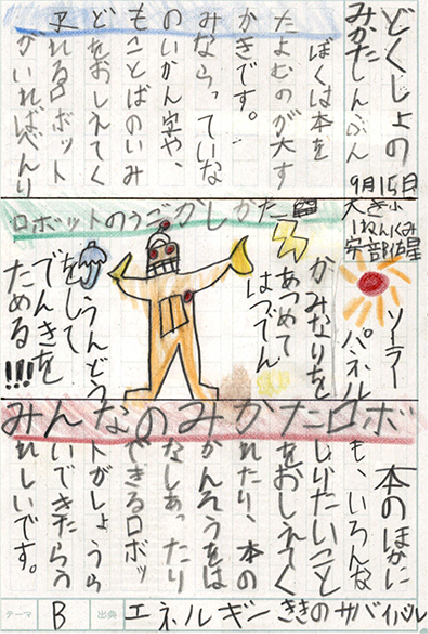 どくしょの
みかたしんぶん
9月15日
大き小
1ねん1くみ
安部佑星
ぼくは本を
たよむのが大す
かきです。
みならっていな
のいかん字や、
もことばのいみ
どをおしえてく
れるロボット
がいればべんり
ロボットのうごかしかた
ソーラー
パネル
かみなりを
あつめて
はつでん
うんどう
をして
でんきを
ためる!!!
みんなのみかたロボ
本のほかに
も、いろんな
しりたいこと
をおしえてく
れたり、本の
かんそうをは
なしあったり
できるロボッ
トがしょうら
いできたらう
れしいです。
テーマ
B
出典
エネルギーききのサバイバル